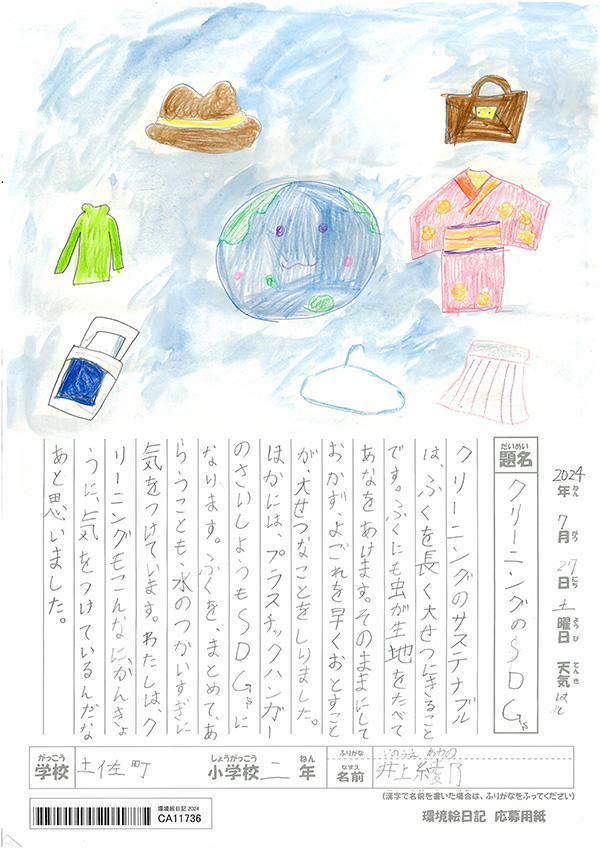 2024年 7月 27日 土曜日 天気 はれ
ねん がつ にち ようび てんき
だいめい
題名 クリーニングのSDGs
クリーニングのサステナブル
は、ふくを長く大せつにきること
です。ふくにも虫が生地をたべて
あなをあけます。そのままにして
おかず、よごれを早く、おとすこと
が、大せつなことをしりました。
ほかには、プラスチックハンガー
のさいしようもSDGsに
なります。ふくを、まとめて、あ
らうことも、水のつかいすぎに
気をつけています。わたしは、ク
リーニングもこんなに、かんきょ
うに、気をつけているんだな
あと思いました。
がっこう しょうがっこう ねん
学校 土佐町 小学校 二年
ふりがな いのうえ あやの
なまえ
名前 井上綾乃
(漢字で名前を書いた場合は、ふりがなをふってください)
環境絵日記 2024
CA11736
環境絵日記 応募用紙